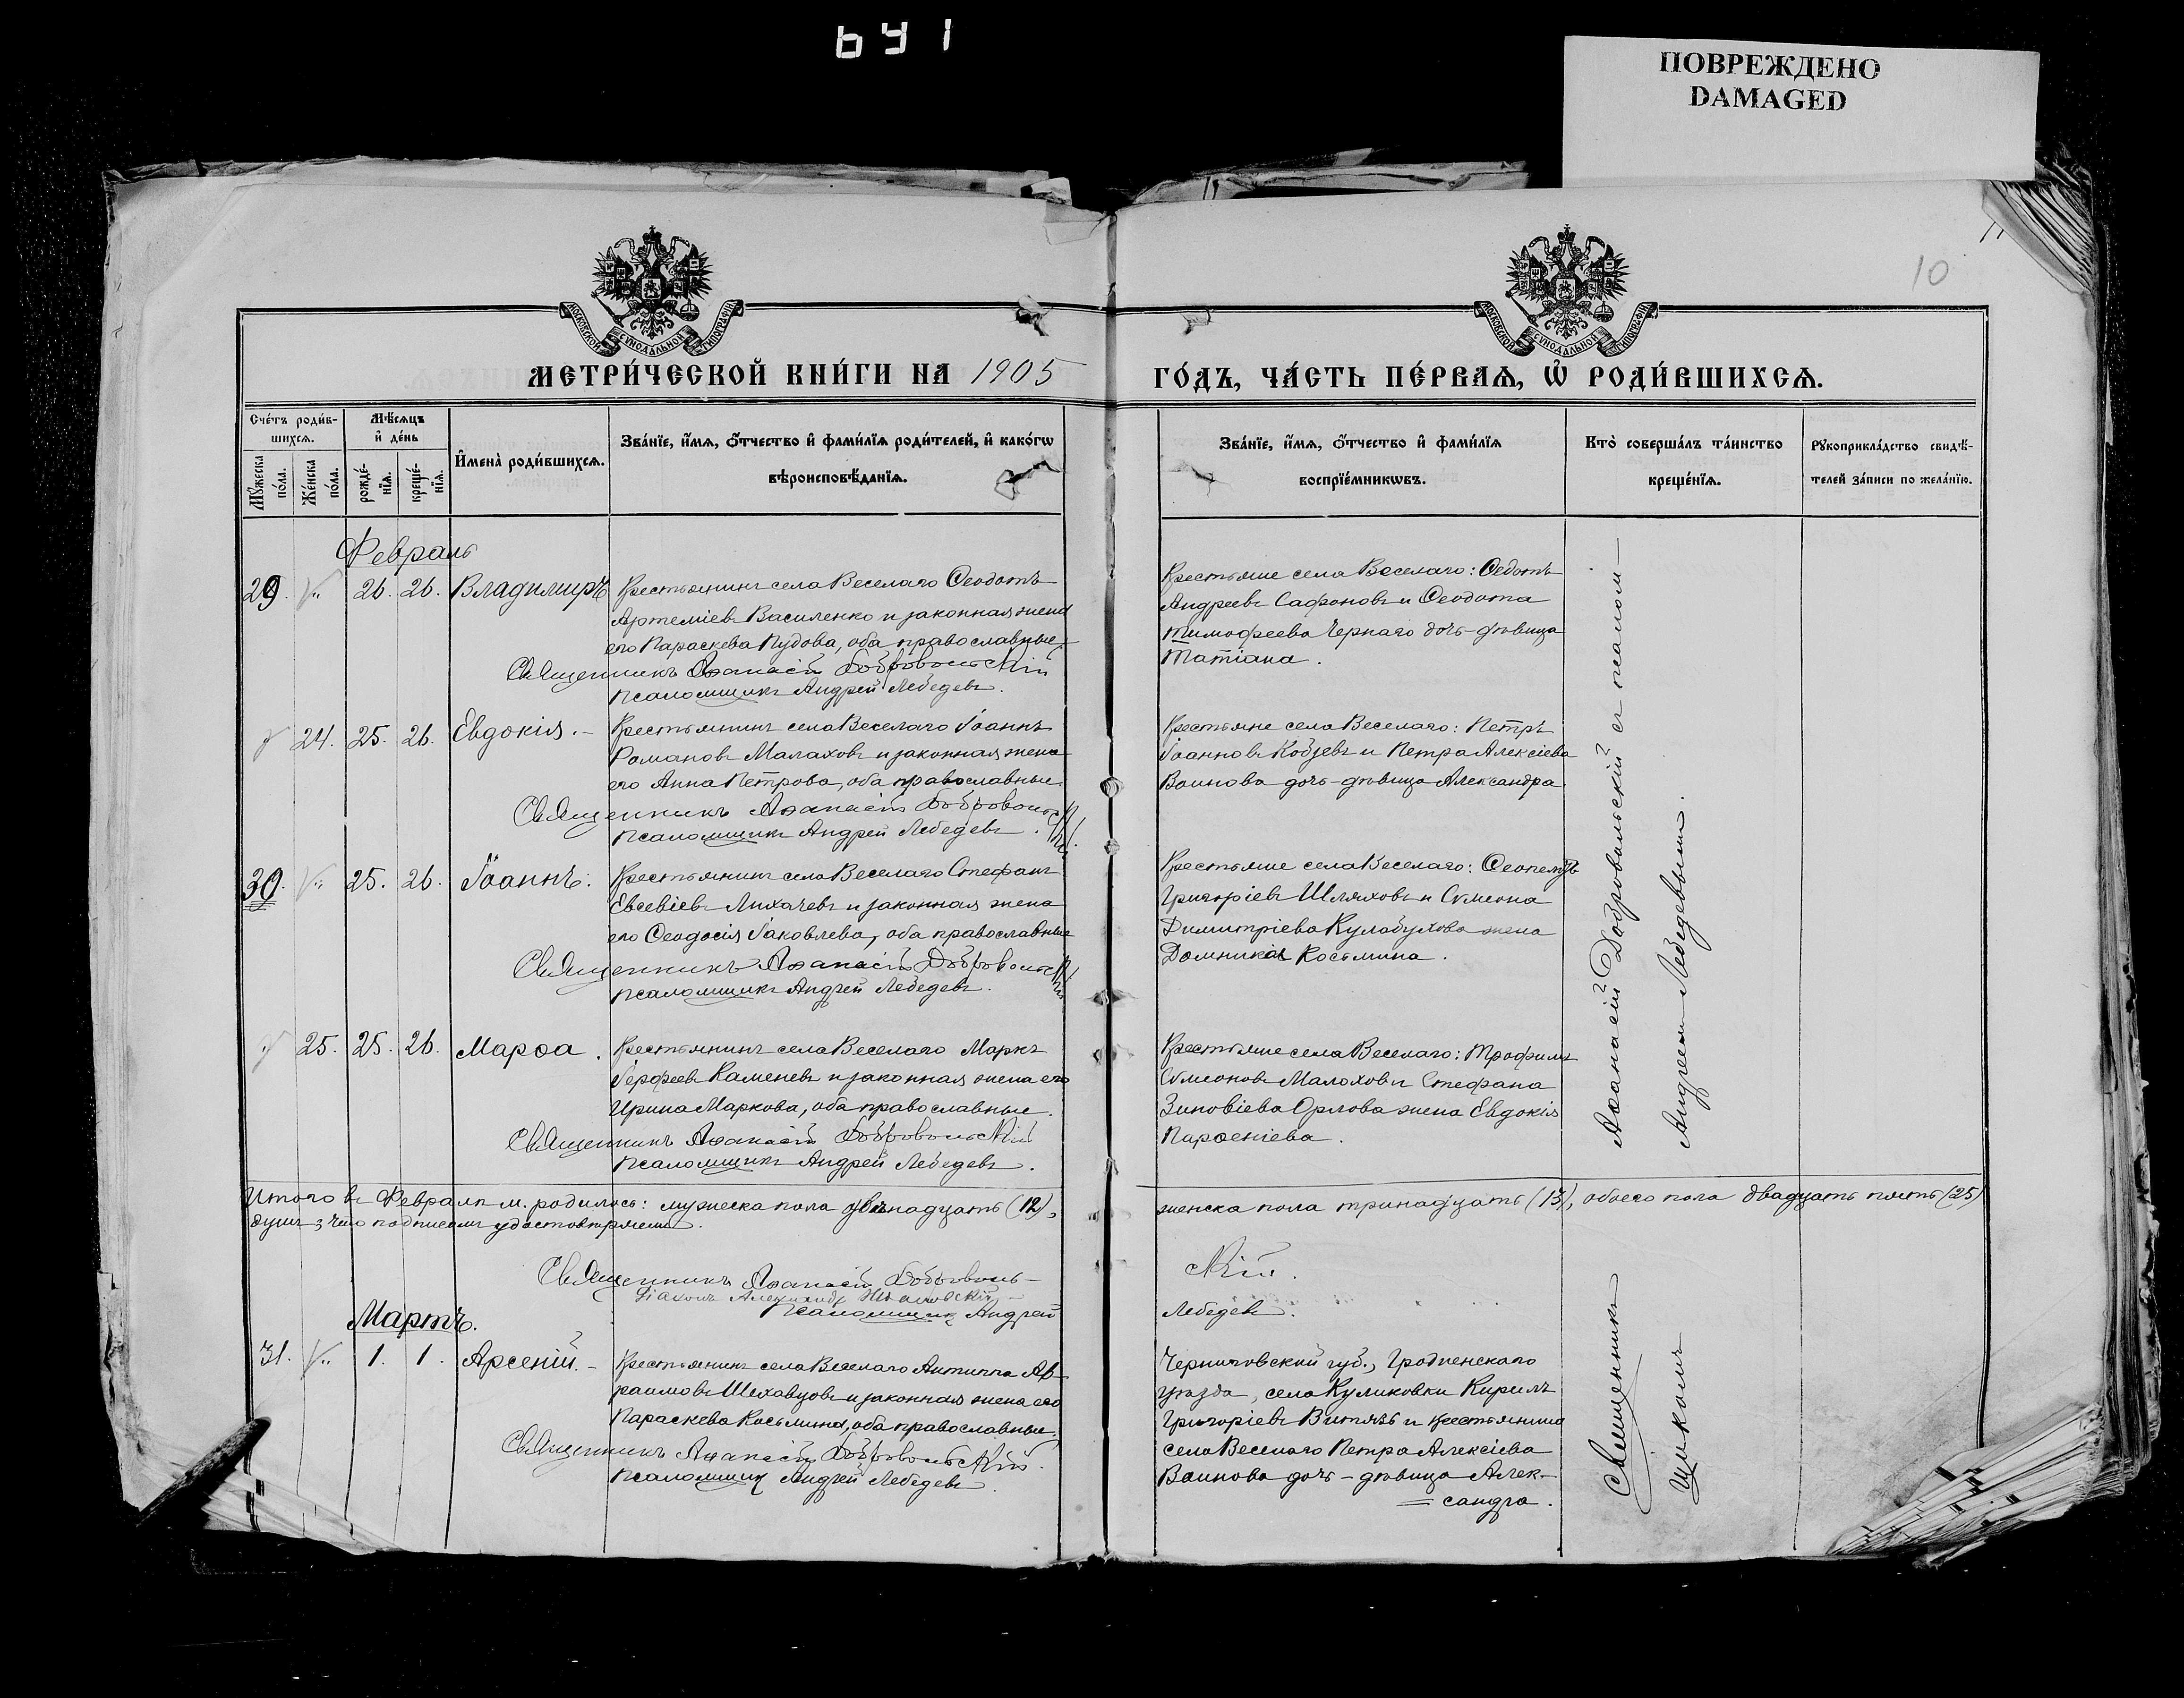 641
ПОВРЕЖДЕНО
DAMAGED
10
МОСКОВСКОЙ СУНОДАЛЬНОЙ ТИПОГРАФІИ
МОСКОВСКОЙ СУНОДАЛЬНОЙ ТИПОГРАФІИ
МЕТРИ́ЧЕСКОЙ КНИ́ГИ НА 1905
ГО́ДЪ, ЧА́СТЬ ПЕ́РВАѦ, Ѡ҆ РОДИ́ВШИХСѦ.
Сче́тъ роди́в-
шихсѧ.
Мѣ́сѧцъ
и҆ де́нь
Мꙋ́жеска
по́ла.
Же́нска
по́ла.
рожде́-
нїѧ.
креще́-
нїѧ.
И҆мена̀ роди́вшихсѧ.
Зва́нїе, и҆́мѧ, ѻ҆́тчество и҆ фами́лїѧ роди́телей, и҆ како́гѡ
вѣроисповѣ́данїѧ.
Зва́нїе, и҆́мѧ, ѻ҆́тчество и҆ фами́лїѧ
воспрїе́мникѡвъ.
Кто̀ соверша́лъ та́инство
креще́нїѧ.
Рꙋкоприкла́дство свидѣ́-
телей за́писи по жела́нїю.
Февраль
29. 26. 26. Владимиръ
Крестьянинъ села Веселаго Ѳеодотъ
Артеміевъ Василенко и законная жена
его Параскева Пудова, оба православные
Священникъ Аѳанасій Добровольскій
Псаломщикъ Андрей Лебедевъ.
Крестьяне села Веселаго: Ѳедотъ
Андреевъ Сафоновъ и Ѳеодота
Тимофеева Чернаго дочь-дѣвица
Татіана.
24. 25. 26. Евдокія.-
Крестьянинъ села Веселаго Іоаннъ
Романовъ Малаховъ и законная жена
его Анна Петрова, оба православные.
Священникъ Аѳанасій Добровольскій.
Псаломщикъ Андрей Лебедевъ.
Крестьяне села Веселаго: Петръ
Іоанновъ Кобзевъ и Петра Алексіева
Воинова дочь-дѣвица Александра.
30. 25. 26. Іоаннъ.
Крестьянинъ села Веселаго Стефанъ
Евсевіевъ Лихачевъ и законная жена
его Ѳеодосія Іаковлева, оба православные
Священникъ Аѳанасій Добровольскій
Псаломщикъ Андрей Лебедевъ.
Крестьяне села Веселаго: Ѳеопемптъ
Григоріевъ Шляховъ и Сѵмеона
Димитріева Кулабухова жена
Домникія Косьмина.
25. 25. 26. Марѳа.
Крестьянинъ села Веселаго Маркъ
Іерофеевъ Каменевъ и законная жена его
Ирина Маркова, оба православные.
Священникъ Аѳанасій Добровольскій
Псаломщикъ Андрей Лебедевъ.
Крестьяне села Веселаго: Трофимъ
Сѵмеоновъ Малоховъ и Стефана
Зиновіева Орлова жена Евдокія
Парѳеніева.
Итого въ Февралѣ м. родилось: мужеска пола двѣнадцать (12),
женска пола тринадцать (13), обоего пола двадцать пять (25)
душъ, въ чемъ подписомъ удостовѣряемъ.
Священникъ Аѳанасій Доброволь-
скій.
Діаконъ Александръ
Псаломщикъ Андрей
Лебедевъ.
Мартъ.
31. 1. 1. Арсеній.-
Крестьянинъ села Веселаго Антиппа Ав-
раамовъ Шеховцовъ и законная жена его
Параскева Косьмина, оба православные.
Священникъ Аѳанасій Добровольскій.
Псаломщикъ Андрей Лебедевъ.
Черниговской губ.,
уѣзда, села Куликовки Кирилъ
Григоріевъ Витязь и крестьянина
села Веселаго Петра Алексіева
Воинова дочь-дѣвица Алек-
=сандра.
Священникъ Аѳанасій Добровольскій съ псалом-
щикомъ Андреемъ Лебедевымъ.